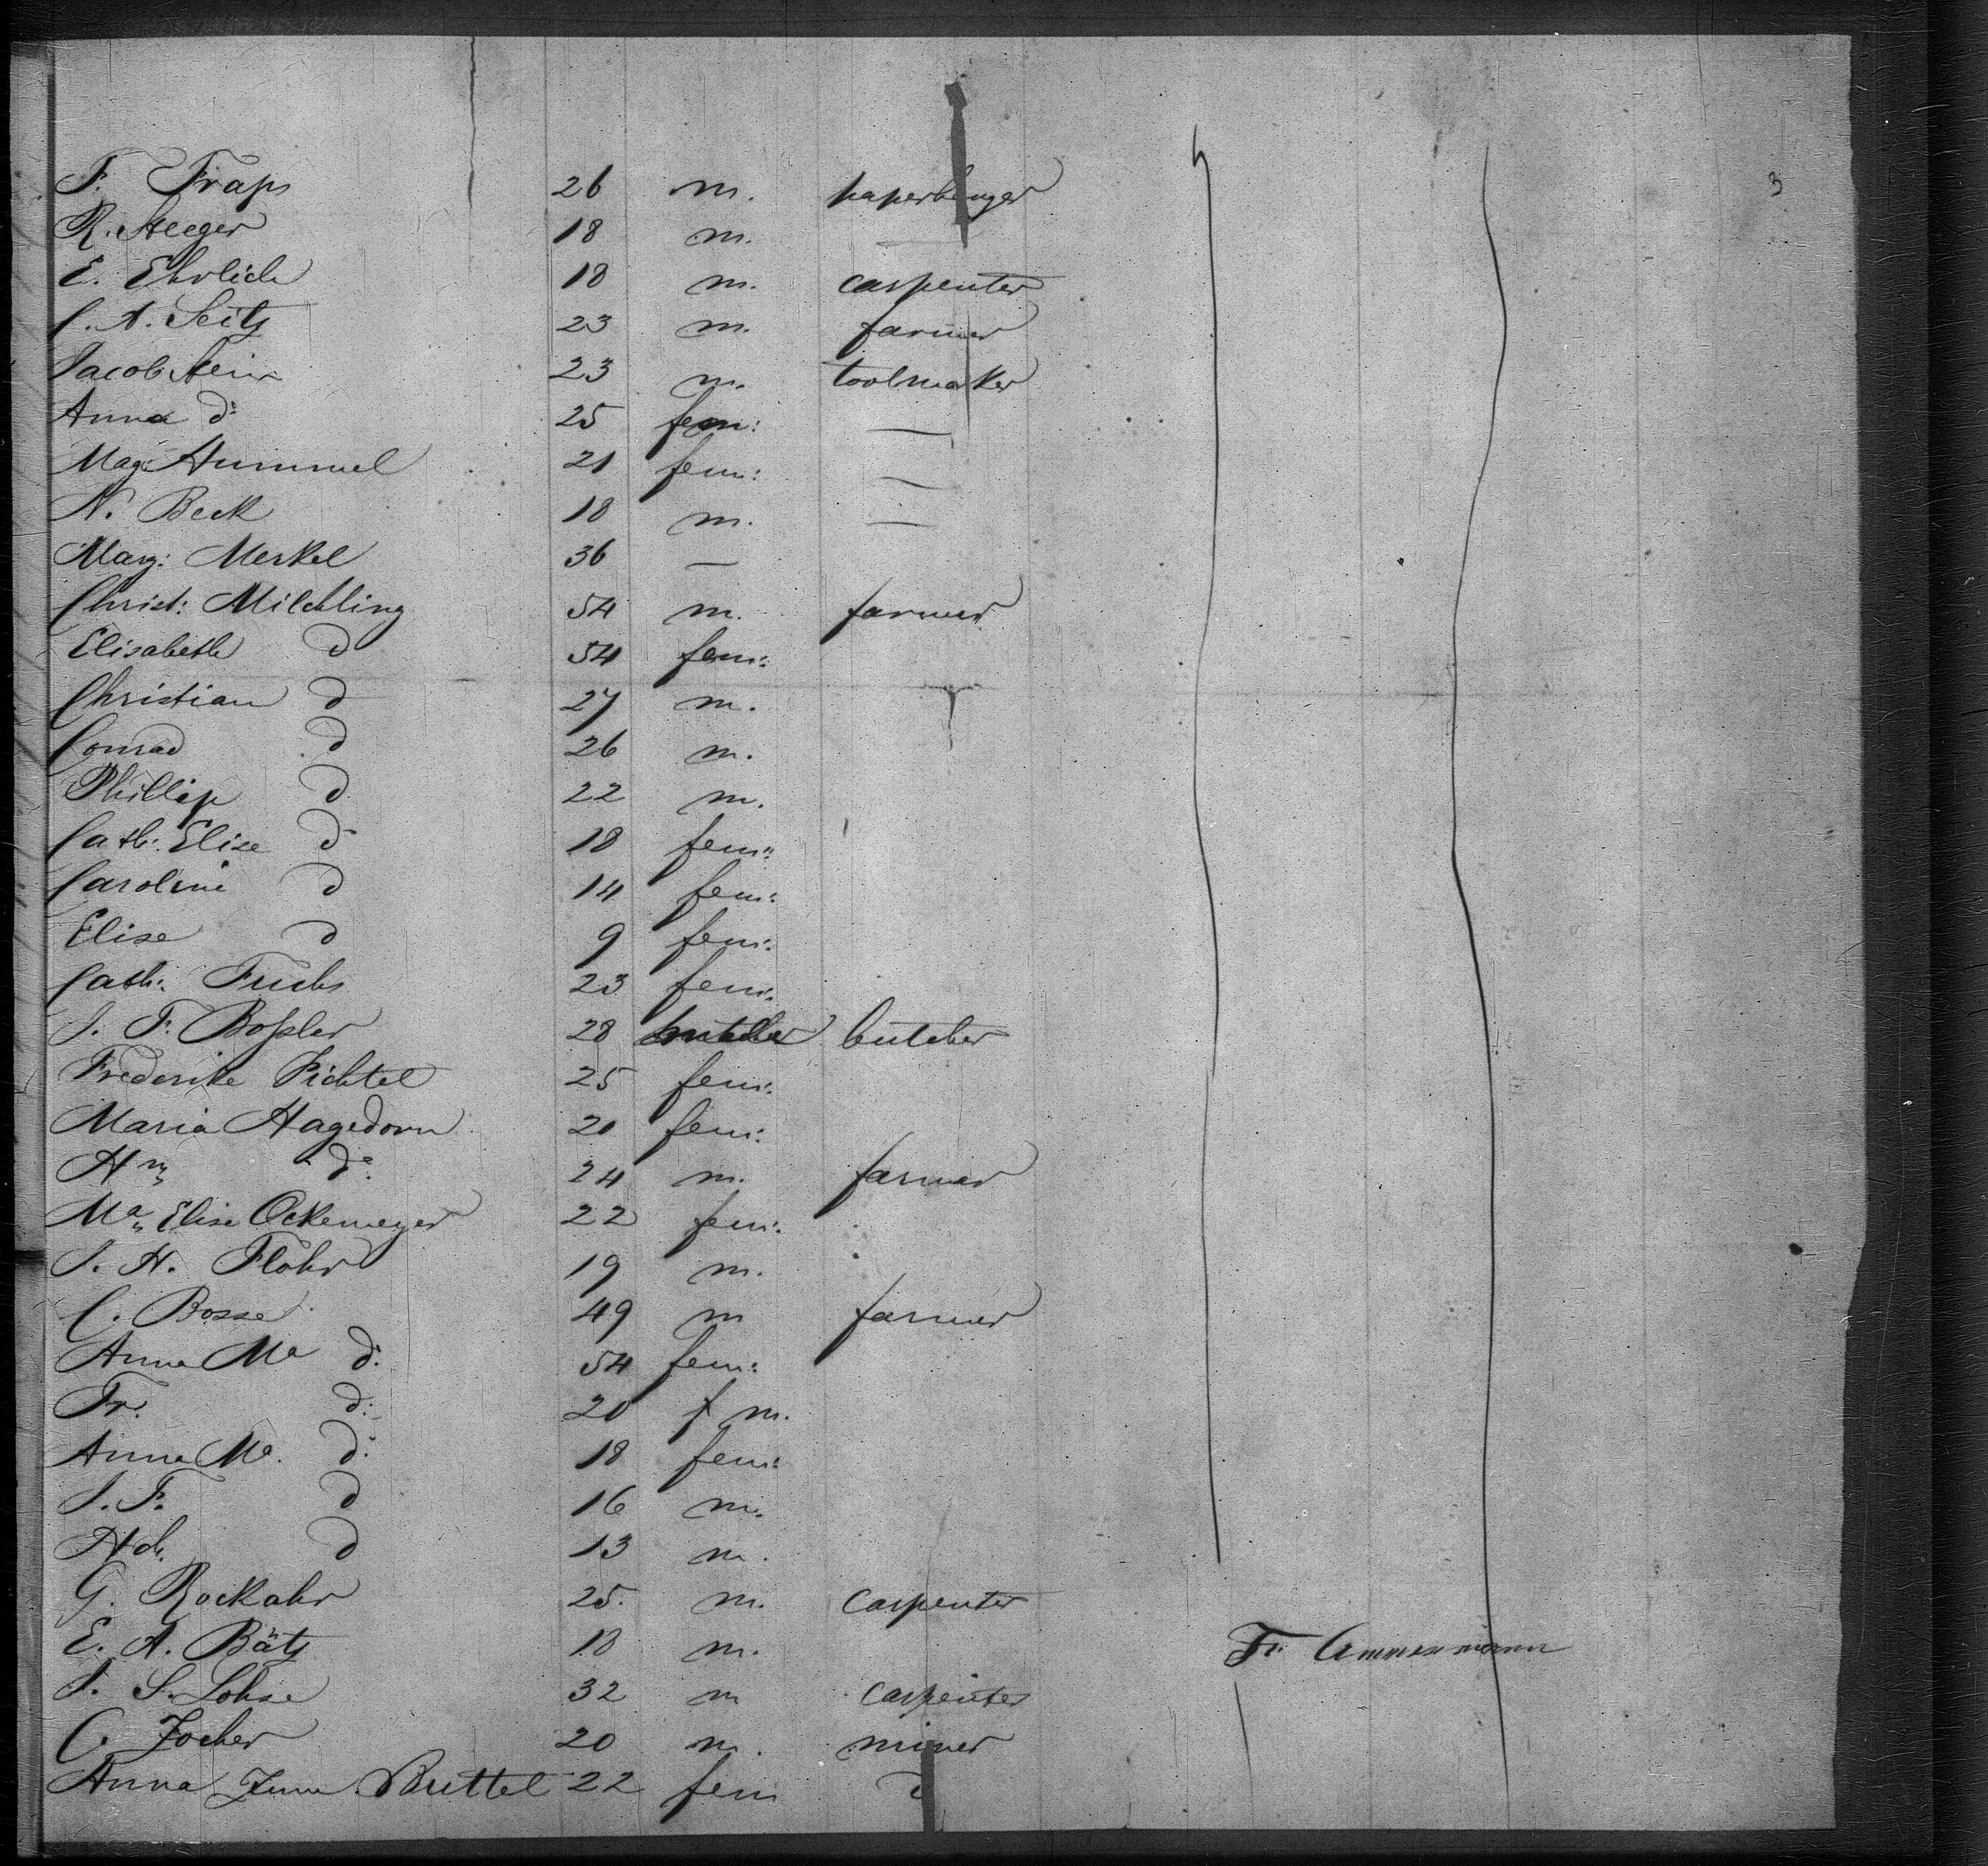 F. Fraps 26 m. paperhanger 3
R. Steeger 18 m. —
E. Ehrlich 18 m. carpenter
C. A. Seitz 23 m. farmer
Jacob Stein 23 m. toolmaker
Anna do 25 fem: —
Mag: Hummel 21 fem: —
N. Beck 18 m. —
Marg: Merkel 36 —
Christ: Milchling 54 m. farmer
Elisabeth d 54 fem:
Christian d 27 m.
Conrad d 26 m.
Phillip d 22 m.
Cath: Elise d 18 fem:
Caroline d 14 fem:
Elise d 9 fem:
Cath: Fuchs 23 fem:
J. F. Boßler 28 butcher butcher
Frederike Pichtel 25 fem:
Maria Hagedorn 20 fem:
Hm do 24 m. farmer
Ma Elise Ockemeyer 22 fem:
J. H. Flohr 19 m.
C. Bosse 49 m farmer
Anna Ma d: 54 fem:
Fr. d: 20 f m.
Anna Ma. d: 18 fem:
J. F. d 16 m.
Hch. d 13 m.
G. Rockahr 25. m. carpenter
E. A. Bätz 18 m.
J. S. Lohse 32 m carpenter
C. Jocher 20 m. miner
Anna Buttel 22 fem d
Fr. Ammermann